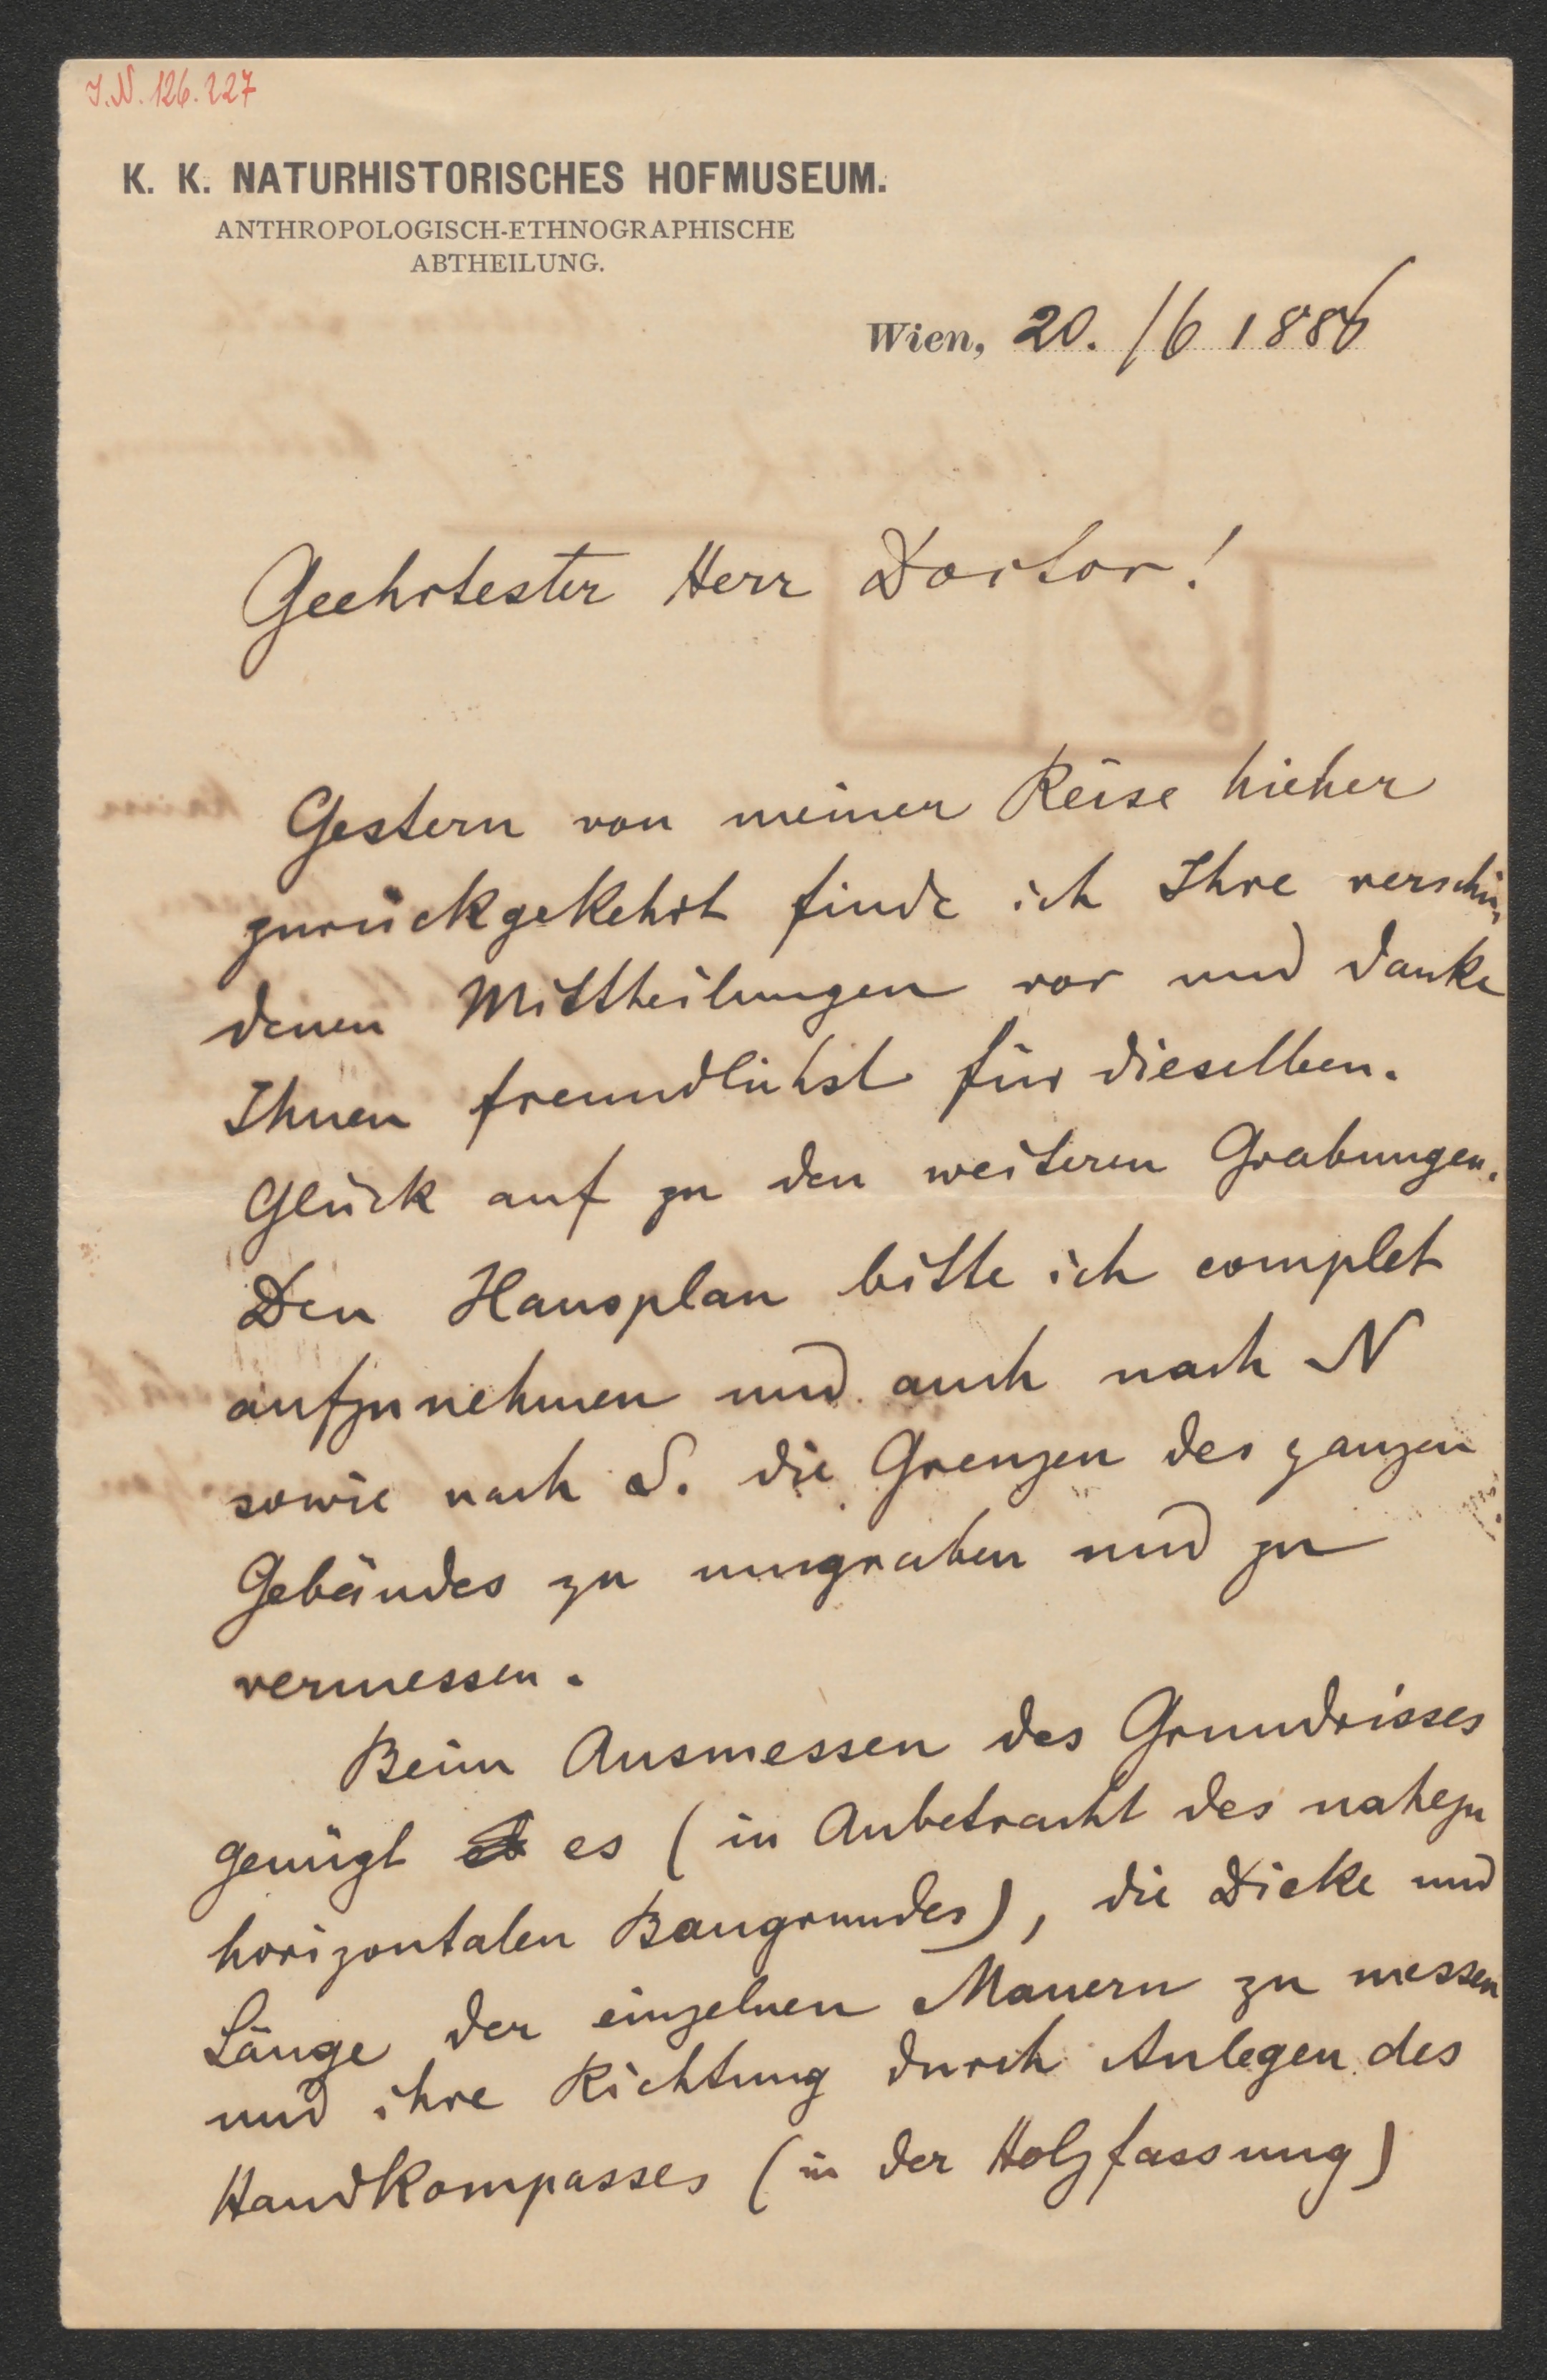 I.N. 126.227
K. K. NATURHISTORISCHES HOFMUSEUM.
ANTHROPOLOGISCH-ETHNOGRAPHISCHE
ABTHEILUNG.
Wien, 20. /6 1886
Geehrtester Herr Doctor!
Gestern von meiner Reise hieher
zurückgekehrt finde ich Ihre verschie-
denen Mittheilungen vor und danke
Ihnen freundlichst für dieselben.
Glück auf zu den weiteren Grabungen.
Den Hausplan bitte ich complet
aufzunehmen und auch nach N
sowie nach S. die Grenzen des ganzen
Gebäudes zu umgraben und zu
vermessen.
Beim Ausmessen des Grundrisses
genügt es (in Anbetracht des nahezu
horizontalen Baugrundes), die Dicke und
Länge der einzelnen Mauern zu messen
und ihre Richtung durch Anlegen des
Handkompasses (in der Holzfassung)